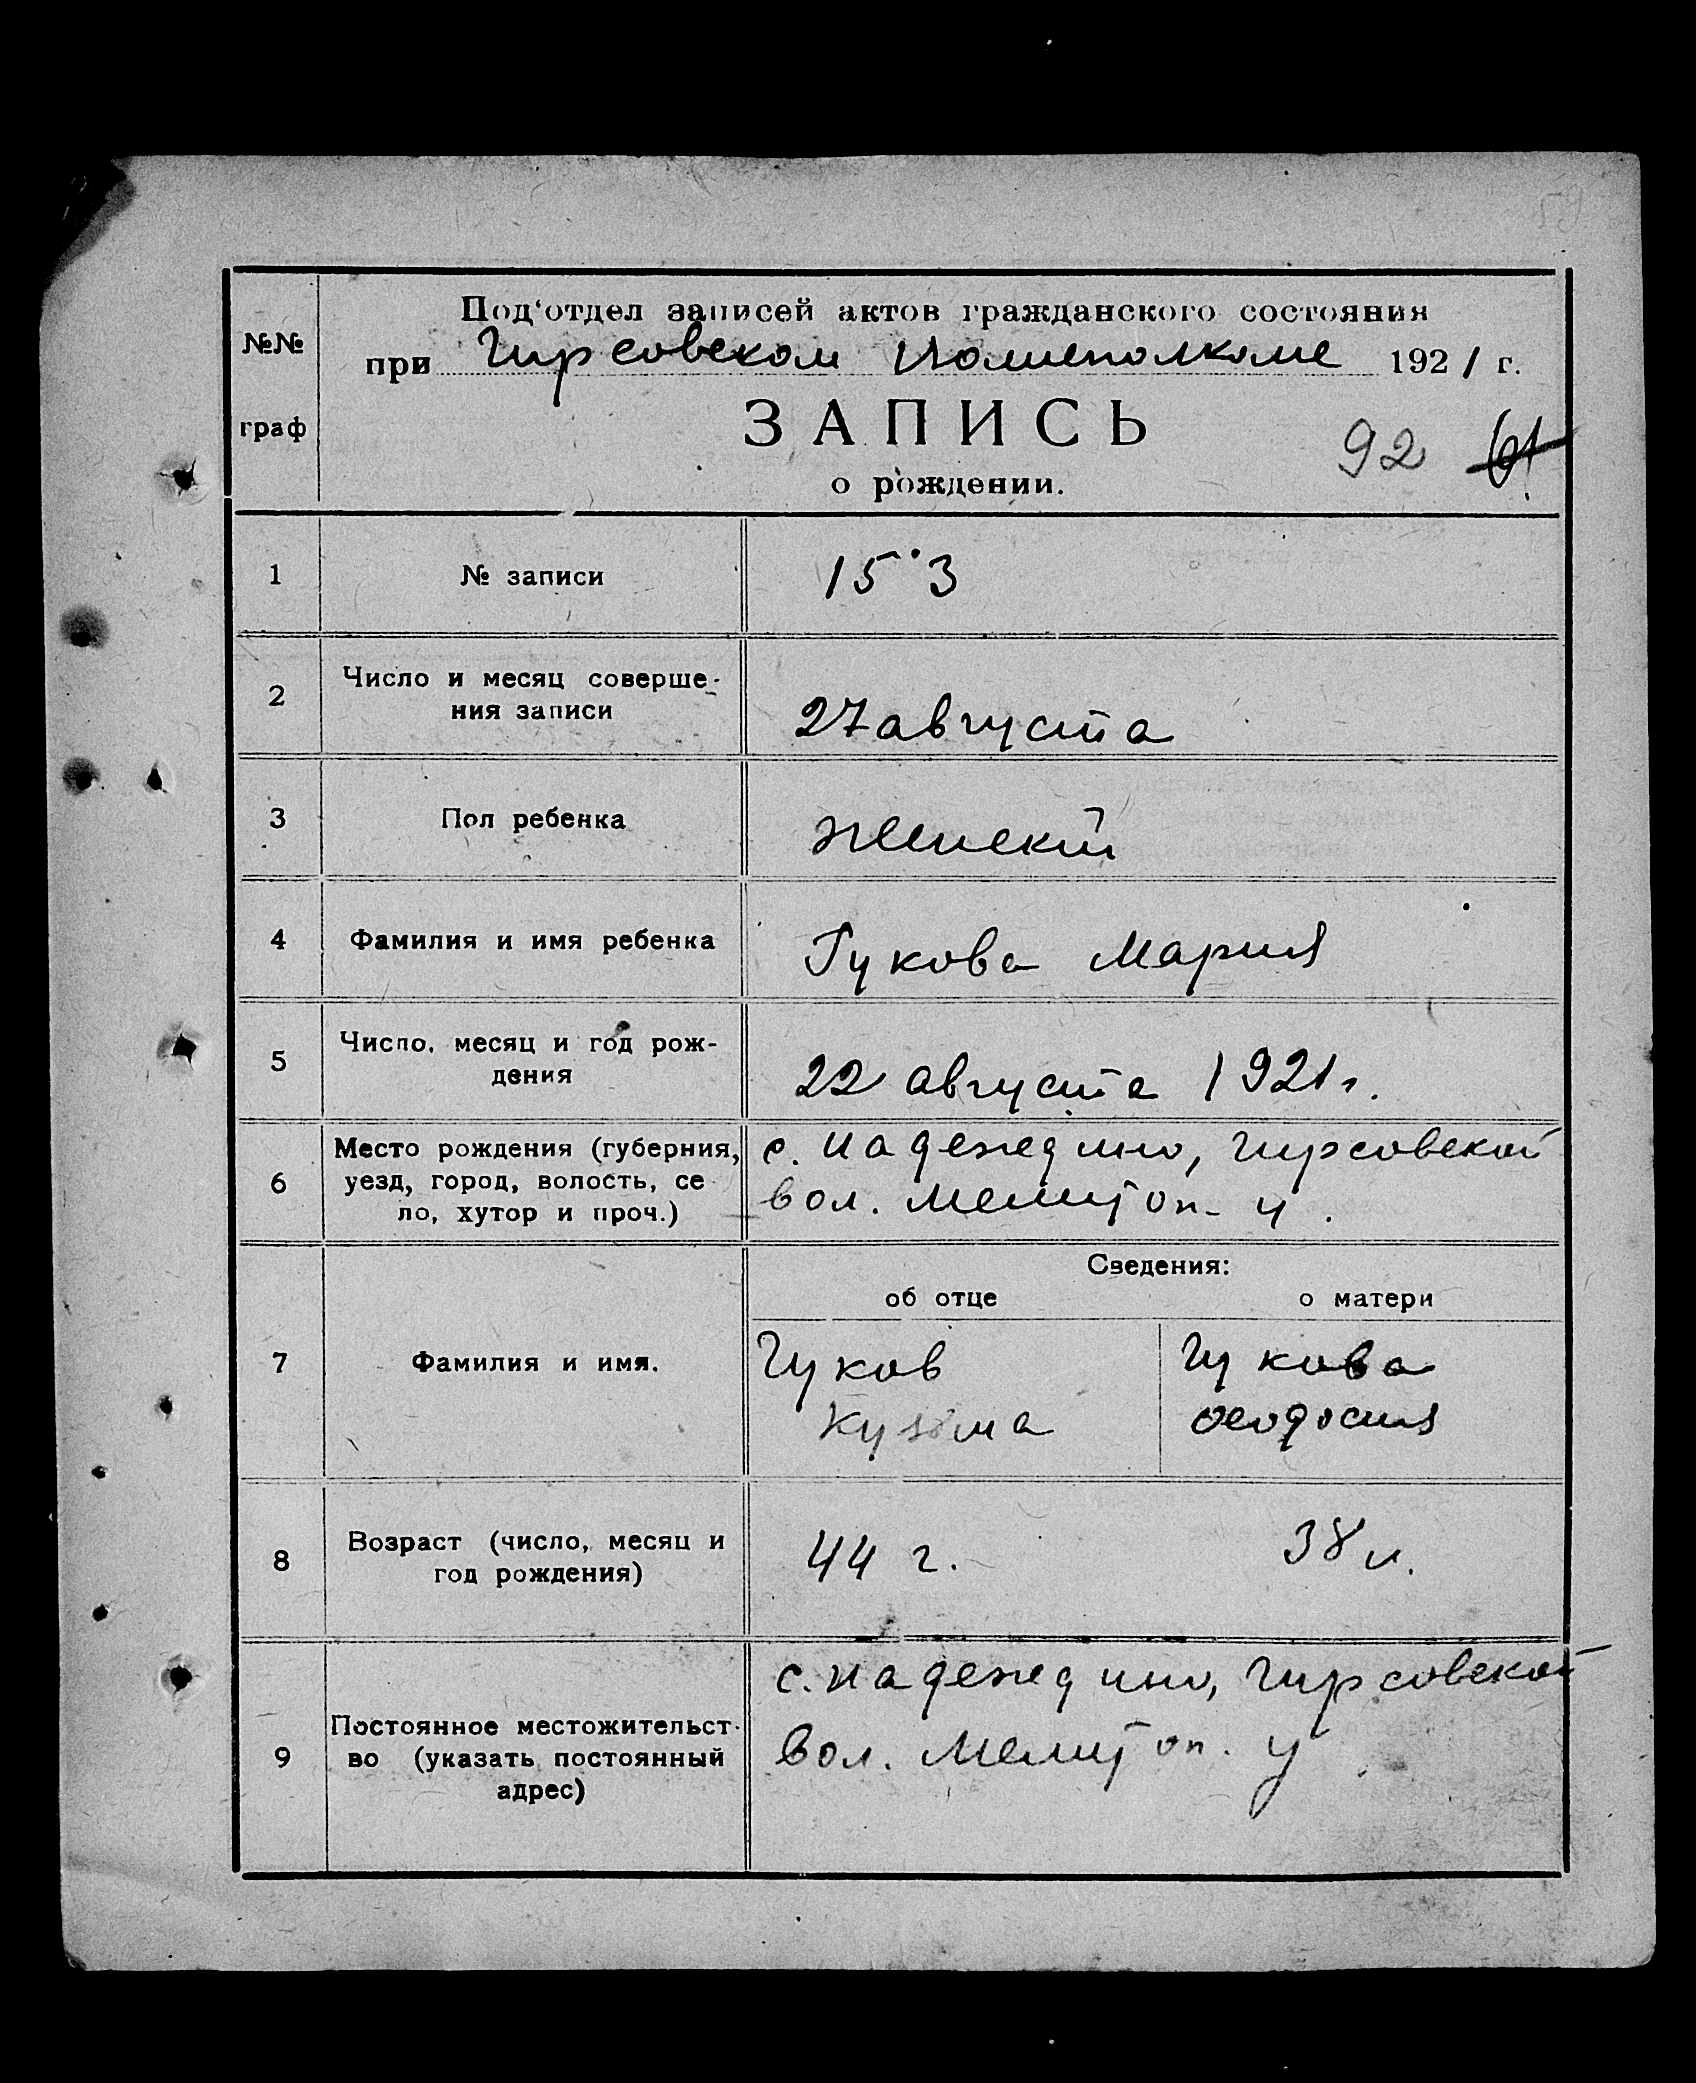 №№
граф
Под‘отдел записей актов гражданского состояния
при Гирсовском Волисполкоме 1921 г.
ЗАПИСЬ
92 61
о рождении.
1 № записи 153
2 Число и месяц соверше-
ния записи 27 августа
3 Пол ребенка женский
4 Фамилия и имя ребенка Гукова Мария
5 Число, месяц и год рож-
дения 22 августа 1921 г.
6 Место рождения (губерния, с. Надеждино, Гирсовской
уезд, город, волость, се- вол. Мелитоп. у.
ло, хутор и проч.)
Сведения:
об отце о матери
7 Фамилия и имя. Гуков Гукова
Кузьма Феодосия
8 Возраст (число, месяц и
год рождения) 44 г. 38 л.
9 Постоянное местожительст- с. Надеждино, Гирсовской
во (указать постоянный вол. Мелитоп. у
адрес)